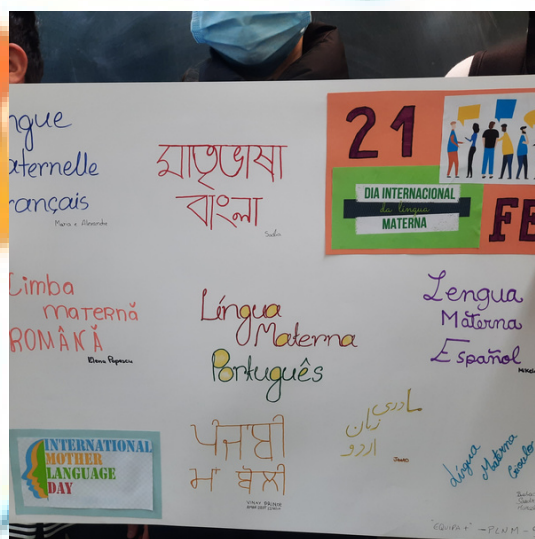 ngue
aternelle
rançais
Maria e Alexandre
মাতৃভাষা
বাংলা
21
DIA INTERNACIONAL
da língua
MATERNA
FE
Limba
maternă
ROMÂNĂ
Elena Popescu
Língua
Materna
Português
Lengua
Materna
Español
INTERNATIONAL
MOTHER
LANGUAGE
DAY
ਪੰਜਾਬੀ
ਮਾਂ ਬੋਲੀ
مادری
زبان
اردو
Língua
Materna
"EQUIPA +" - PLNM -